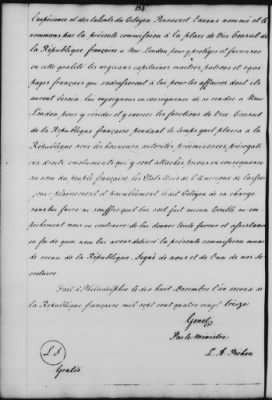 l'expérience et des talents du Citoyen Rennevest Varaux nommé et le
nommons par la présente commission à la place de Vice Consul
de la République française à New London pour protéger et favoriser
en cette qualité les négocians capitaines maitres patrons et equi-
pages français qui s'adresseront à lui pour les affaires dont ils
auront besoin. Lui enjoignons en conséquence de se rendre à New
London pour y résider et y exercer les fonctions de Vice Consul
de la République française pendant le temps qu'il plaira à la
République avec les honneurs autorités préeminences, prérogati-
ves droits emoluments qui y sont attachés Prions en conséquence
au nom du peuple française les Etats Unis de l'Amerique de laisser
jouir pleinement et paisiblement le dit Citoyen de sa charge
sans lui faire ni souffrir qu'il lui soit fait aucun trouble ni em-
pechement mais au contraire de lui donner toute faveur et assistance
en foi de quoi nous lui avons délivré la présente commission munie
du sceau de la République. Signé de nous et de l'un de nos Se-
cretaires.
Fait à Philadelphie le dix huit Decembre l'an second de
la République française mil sept cent quatre vingt treize
Genet
Par le Ministre
L. A. Pichon
L. S.
Gratis